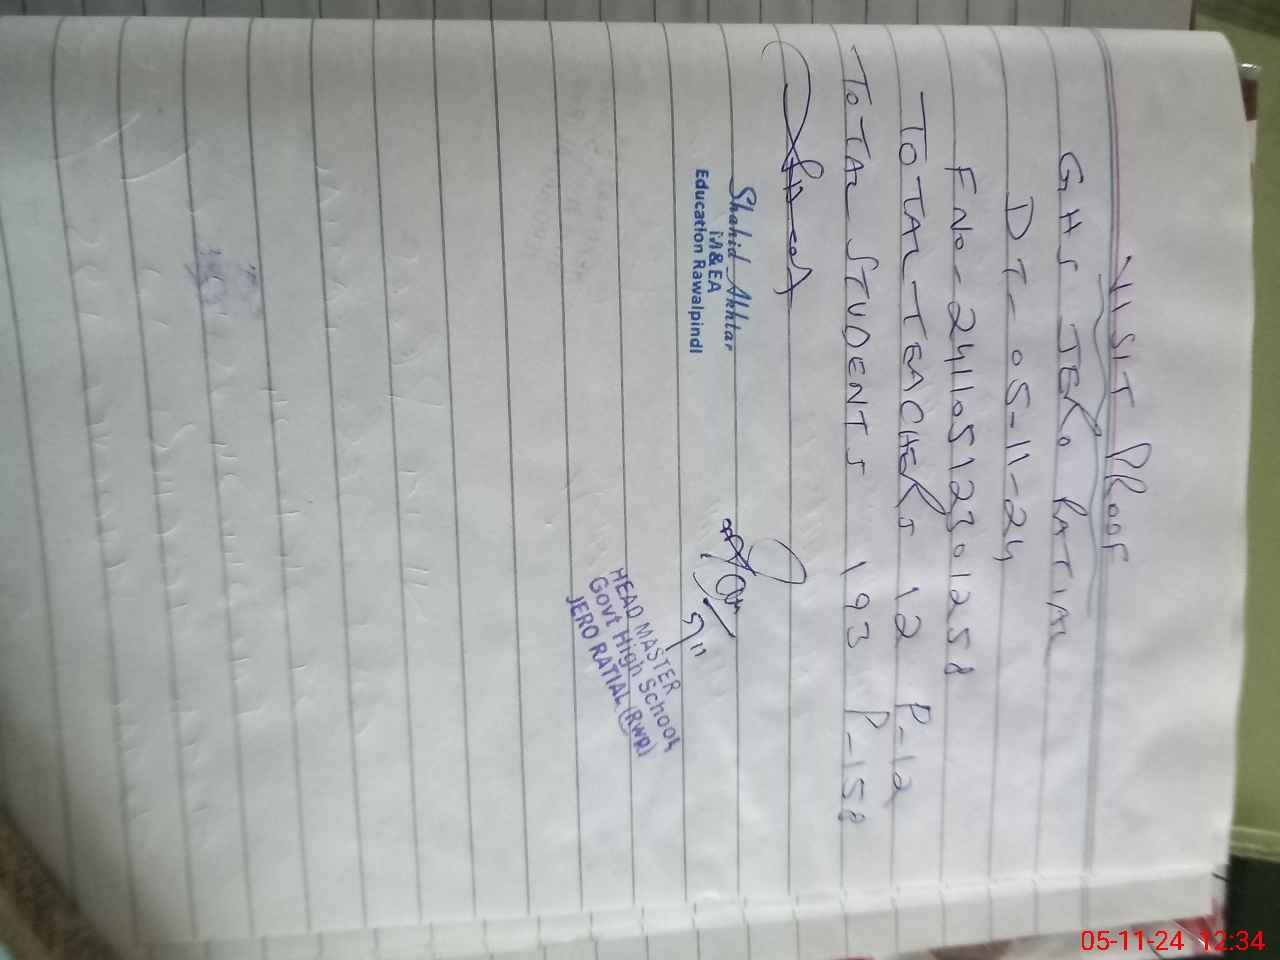 VISIT PROOF
GHS JERO RATIAL
DT- 05-11-24
FNo- 24110512301258
TOTAL TEACHERS 12 P-12
TOTAL STUDENTS 193 P-158
Shahid Akhtar
M&EA
Education Rawalpindi
5/11
HEAD MASTER
Govt High School
JERO RATIAL (RWP)
05-11-24 12:34